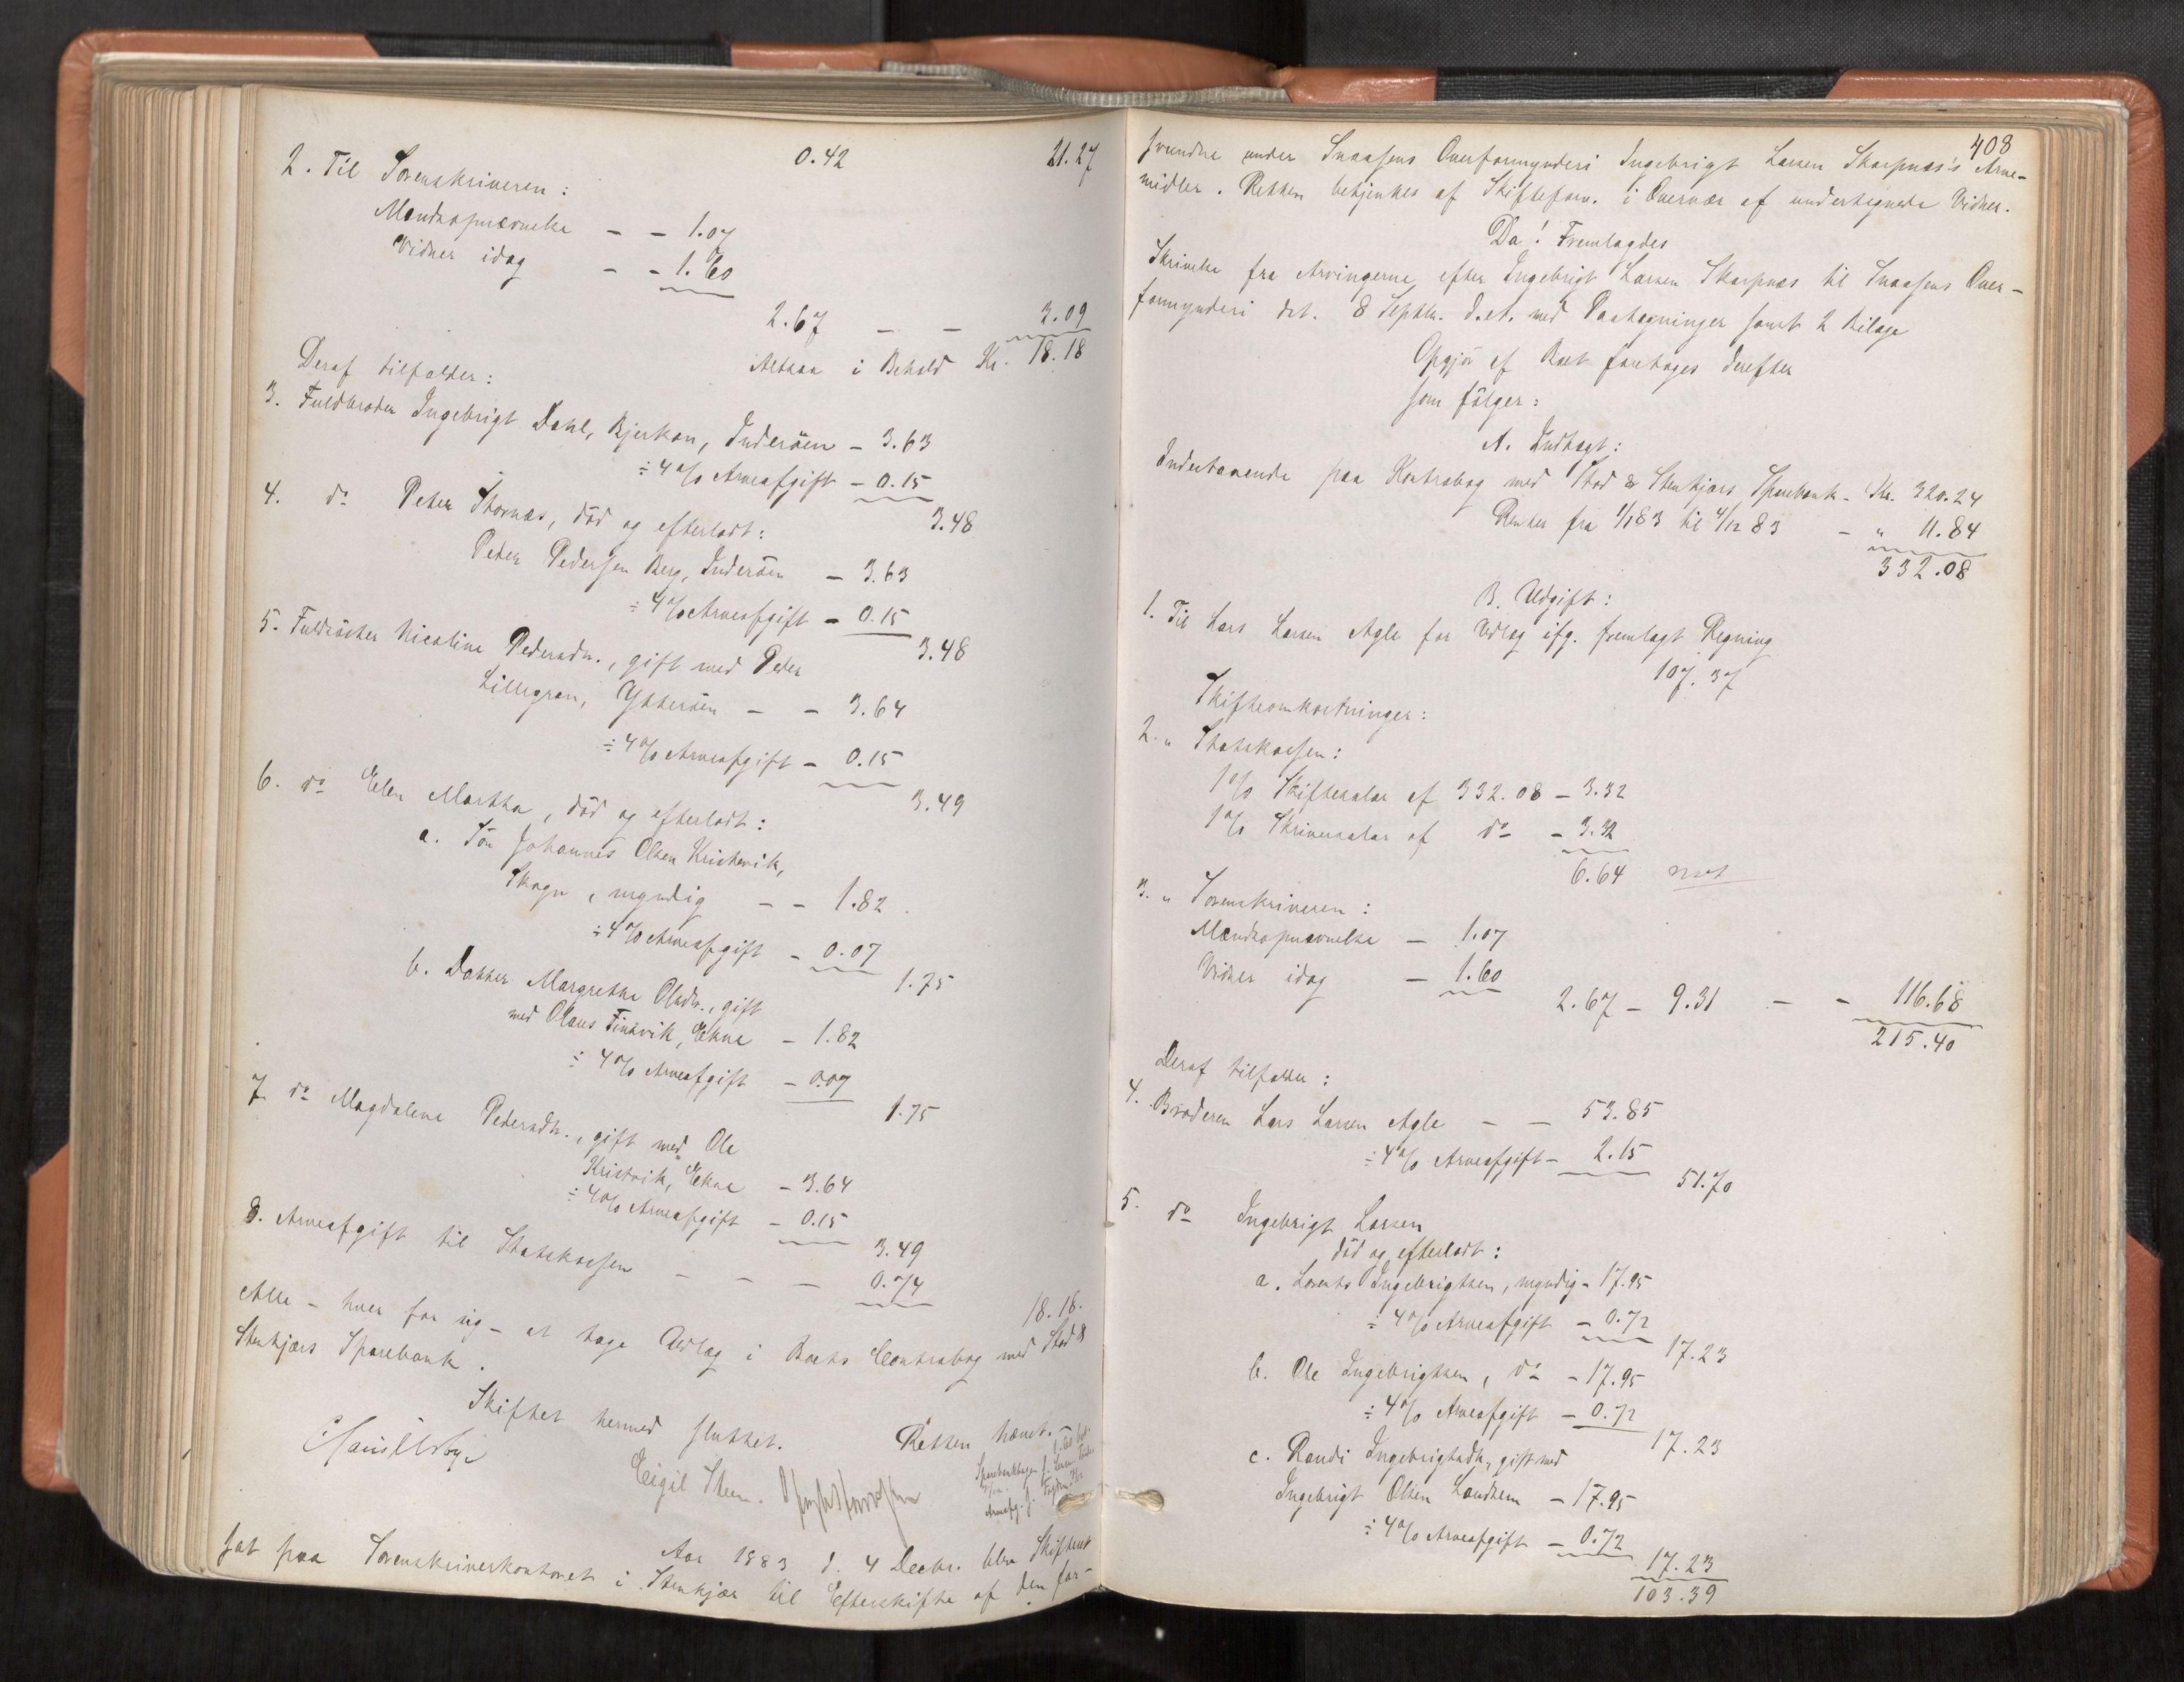 0.42 21.27
2. Til Sorenskriveren:
Mændsopnævnelse – – 1.07
Vidner idag – – 1.60
2.67 – – 3.09
Altsaa i Behold Kr. 18.18
Deraf tilfalder:
3. Fuldbroder Ingebrigt Dahl, Bjerkan, Inderöen – 3.63
÷ 4% Arveafgift – 0.15
3.48
4. do Peter Stornæs, död og efterladt:
Peter Pedersen Berg, Inderöen – 3.63
÷ 4% Arveafgift – 0.15
3.48
5. Fuldsöster Nicoline Pedersdr., gift med Peder
Lillegran, Ytteröen – – 3.64
÷ 4% Arveafgift – 0.15
3.49
6. do Elen Martha, död og efterladt:
a. Sön Johannes Olsen Kristvik,
Skogn, myndig – – 1.82
÷ 4% Arveafgift – 0.07
1.75
b. Datter Margrethe Olsdr., gift
med Olaus Finsvik, Ekne – 1.82
÷ 4% Arveafgift – 0.07
1.75
7 do Magdalene Pedersdtr., gift med Ole
Kristvik, Ekne – 3.64
÷ 4% Arveafgift – 0.15
3.49
8. Arveafgift til Statskassen – – – 0.74
18.18.
Alle – hver for sig – at tage Udlæg i Boets Contrabog med Stod &
Stenkjærs Sparebank.
Skiftet hermed sluttet. Retten hævet.
Eigil Steen.
Aar 1883 d. 4 Decbr. blev Skifteret
sat paa Sorenskriverkontoret i Stenkjær til Efterskifte af den for-
408
svundne under Snaasens Overformynderi Ingebrigt Larsen Skarpnæs's Arve-
midler. Retten betjentes af Skifteforv. i Overvær af undertegnede Vidner.
Da! Fremlagdes
Skrivelse fra Arvingerne efter Ingebrigt Larsen Skarpnæs til Snaasens Over-
formynderi dat. 8 Septbr. d.A. med Paategninger samt 2 Bilage
Opgjör af Boet foretages derefter
som fölger:
A. Indtægt:
Indestaaende paa Kontrabog med Stod & Stenkjærs Sparebank – Kr. 320.24
Renter fra 1/1 83 til 4/12 83 – " 11.84
332.08
B. Udgift:
1. Til Lars Larsen Agle for Udlæg ifg. fremlagt Regning
107.37
Skifteomkostninger:
2. " Statskassen:
1% Skiftesalær af 332.08 – 3.32
1% Skriversalær af do – 3.32
6.64
3. " Sorenskriveren:
Mændsopnævnelse – 1.07
Vidner idag – 1.60
2.67 – 9.31 – – 116.68
215.40
Deraf tilfalder:
4. Broderen Lars Larsen Agle – – 53.85
÷ 4% Arveafgift – 2.15
51.70
5. do Ingebrigt Larsen
död og efterladt:
a. Lorents Ingebrigtsen, myndig – 17.95
÷ 4% Arveafgift – 0.72
17.23
b. Ole Ingebrigtsen, do – 17.95
÷ 4% Arveafgift – 0.72
17.23
c. Randi Ingebrigtsdtr, gift med
Ingebrigt Olsen Landsem – 17.95
÷ 4% Arveafgift – 0.72
17.23
103.39